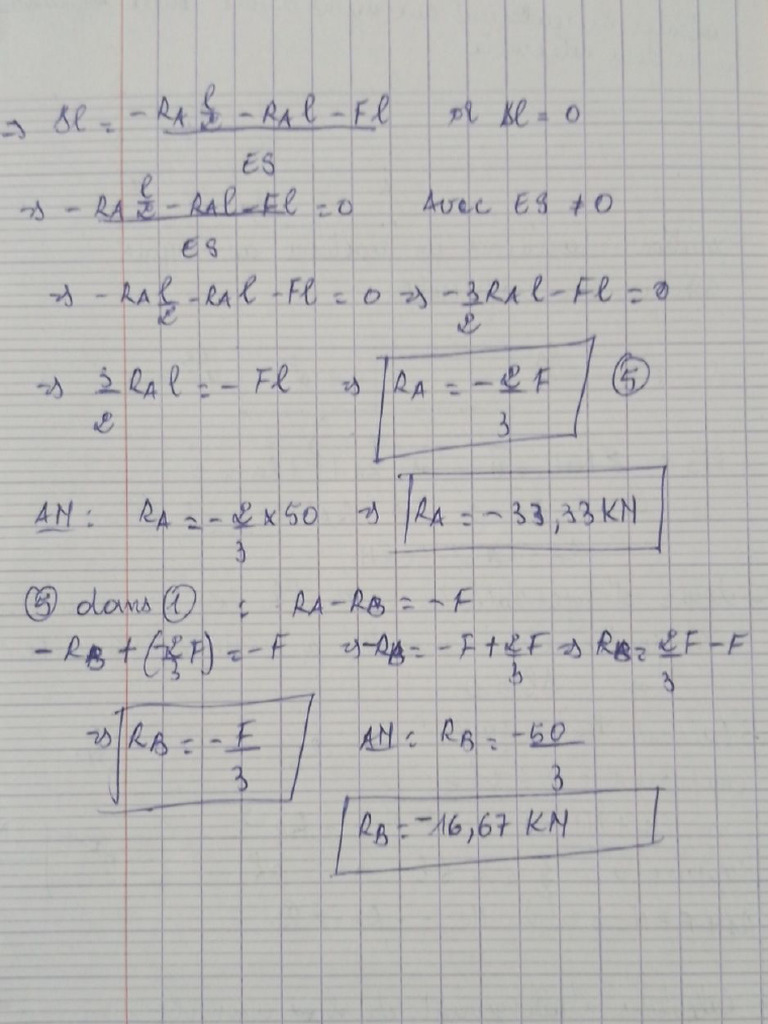 ⇒ Δl = (-RA l/2 - RAl - Fl)/ES or Δl = 0
⇒ (-RA l/2 - RAl - Fl)/ES = 0 Avec ES ≠ 0
⇒ -RA l/2 - RAl - Fl = 0 ⇒ -3/2 RAl - Fl = 0
⇒ 3/2 RAl = - Fl ⇒ RA = -2/3 F ⑤
AN : RA = -2/3 × 50 ⇒ RA = -33,33 KN
⑤ dans ① : RA - RB = -F
-RB + (-2/3 F) = -F ⇒ -RB = -F + 2/3 F ⇒ RB = 2/3 F - F
⇒ RB = -F/3 AN : RB = -50/3
RB = -16,67 KN